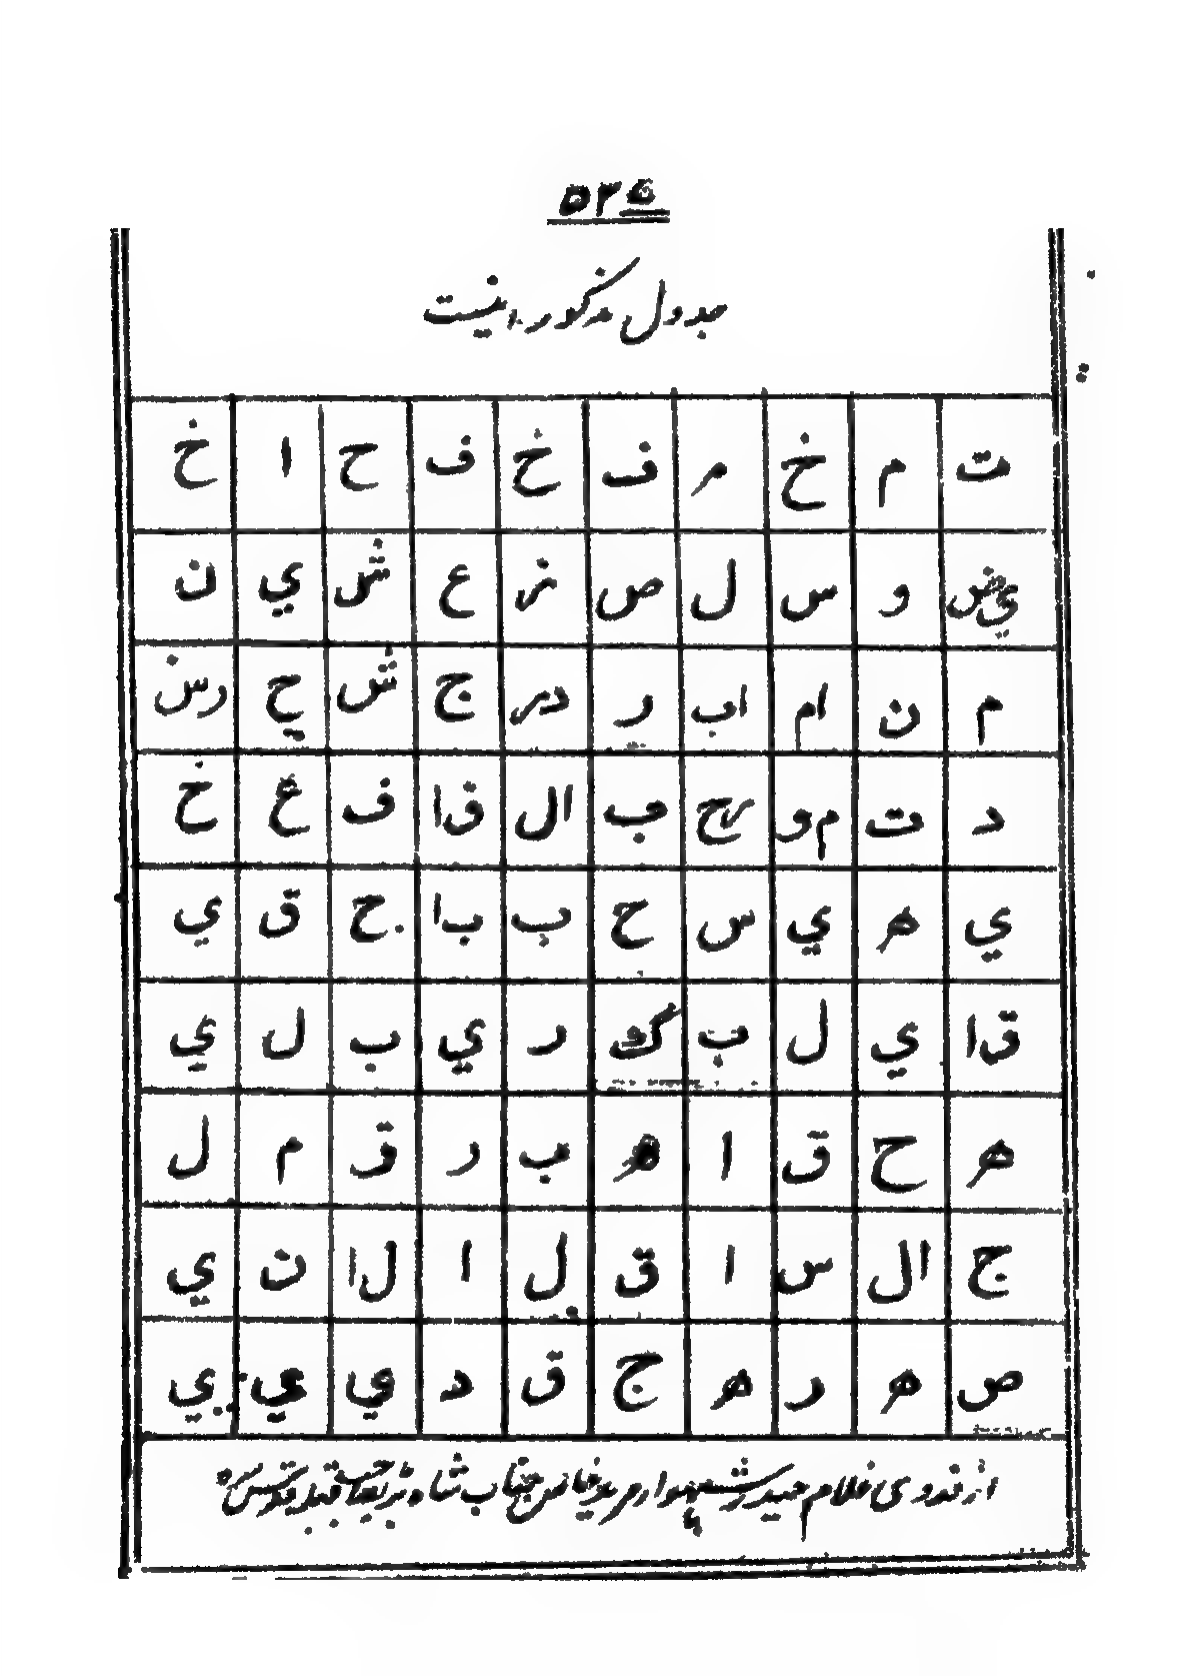 ۵۳۵
جدول مذکور اینست
ت م خ ر ف خ ف ح ا خ
ض ي و س ل ص ز ع ش ي ن
م ن ام اب ر در ج ش ح رس
د ت م و رج ب ال ق ا ف غ خ
ي ه ي س ح ب ب ا ح ق ي
ق ا ي ل ب ک ر ي ب ل ي
ه ح ق ا ه ب ر ق م ل
ج ال س ا ق ل ا ل ا ن ي
ص ه ر ه ج ق د ي ي ي
از فدوی غلام حیدر شہسوار مرید خاص جناب شاہ صاحب قبلہ قدس سرہ